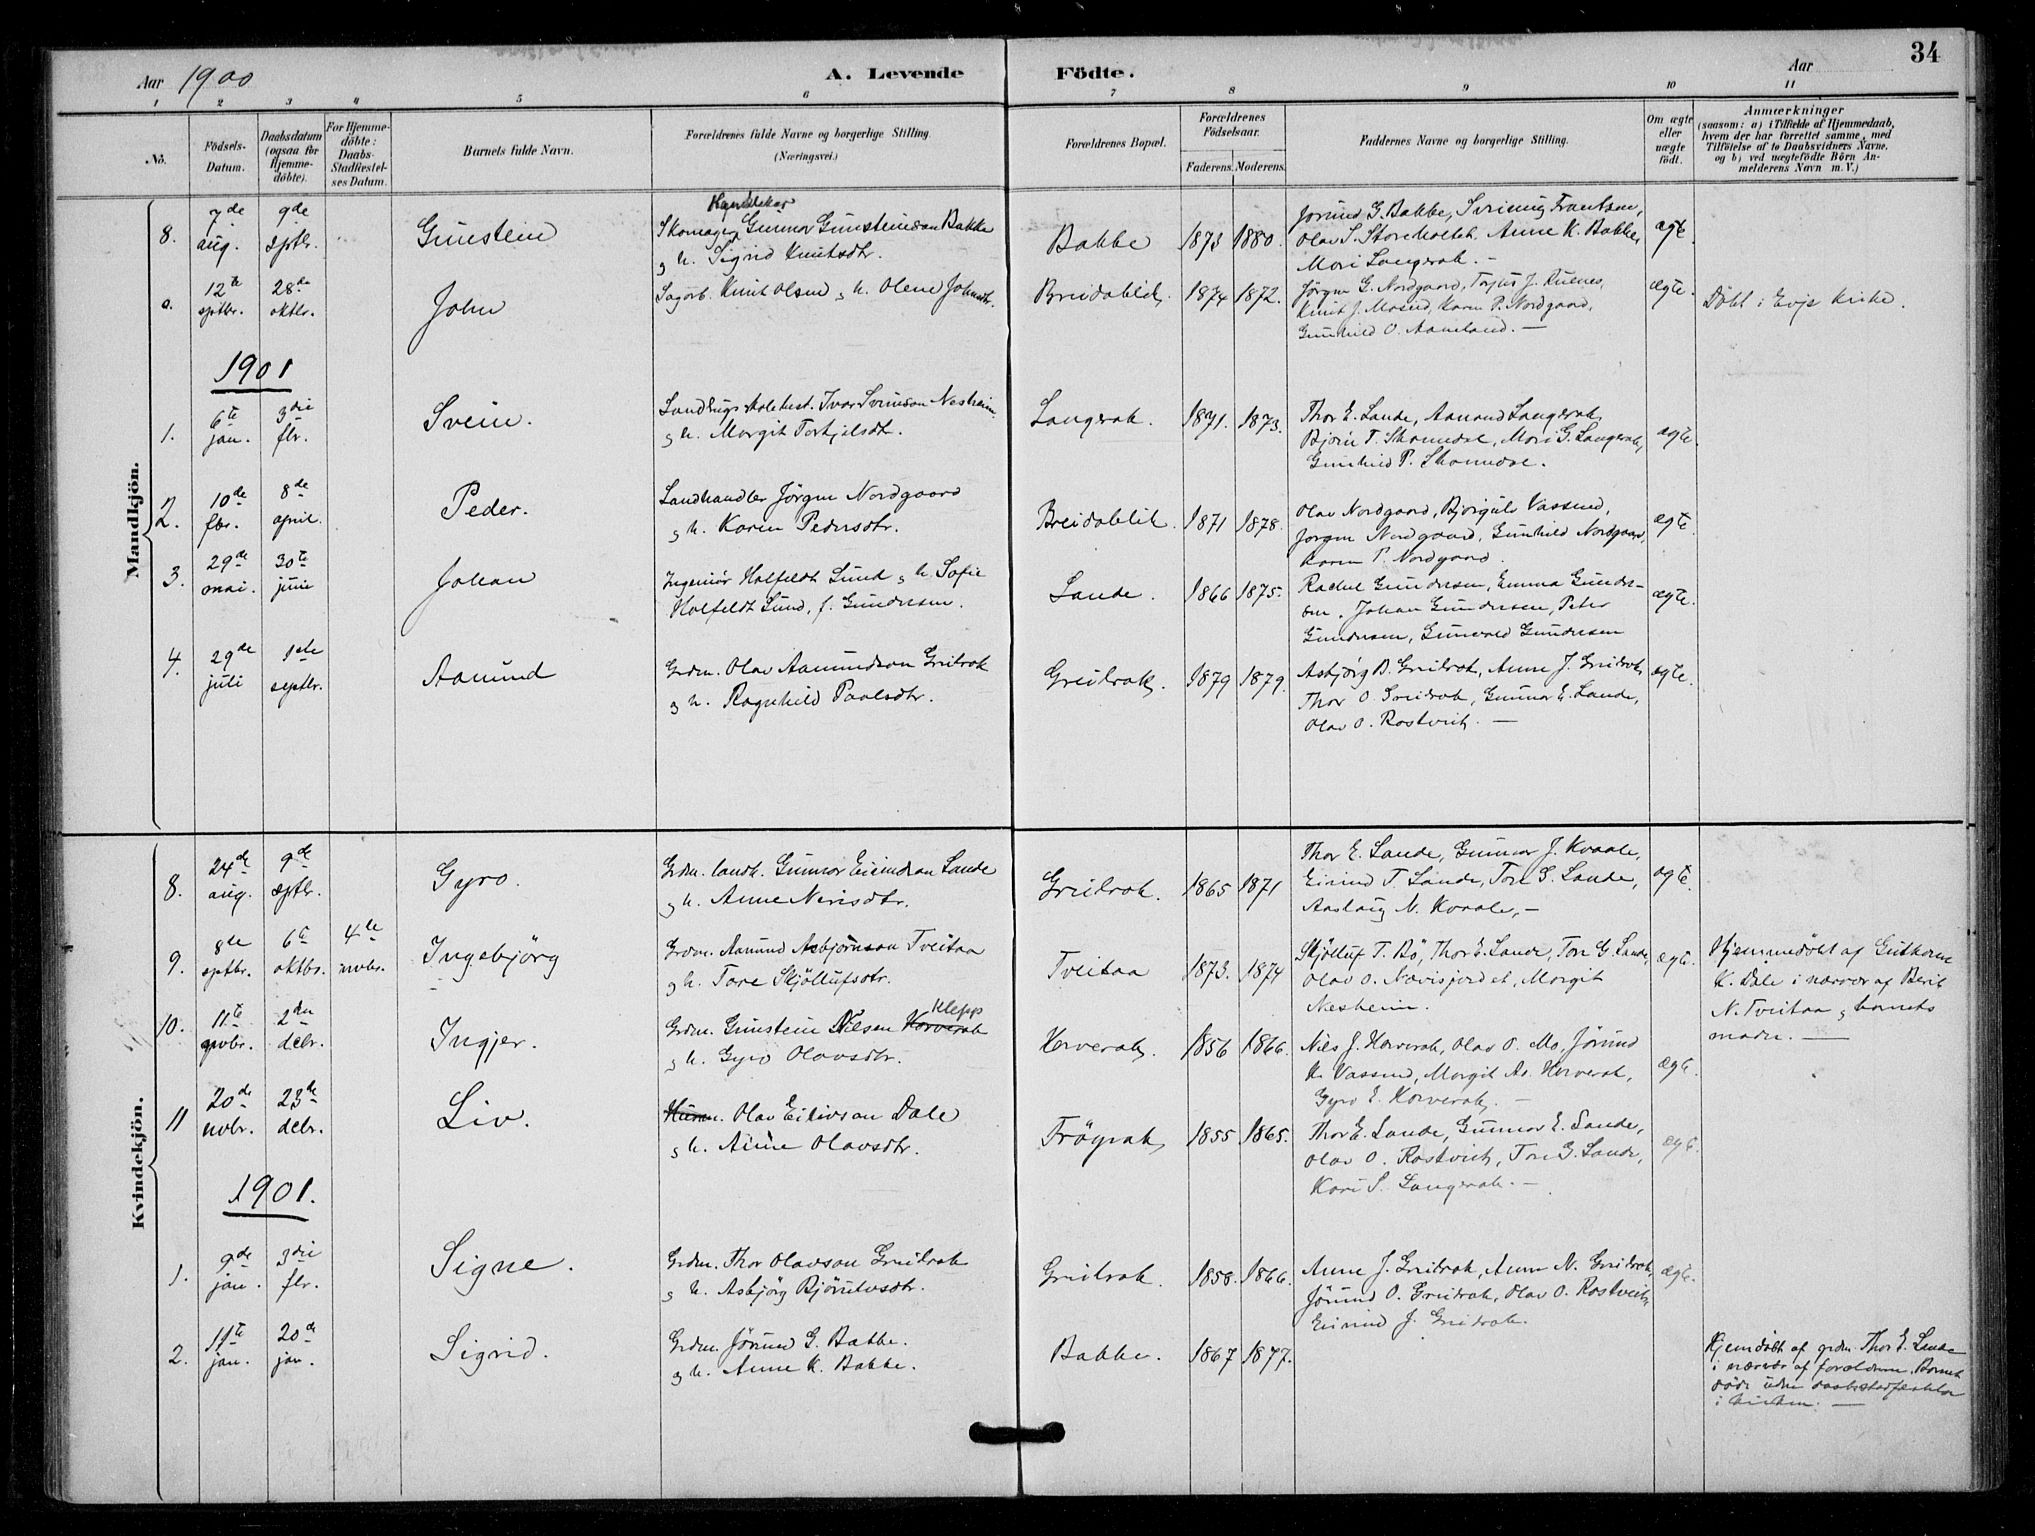 34
Aar 1900
A. Levende
Födte.
Aar
1 2 3 4 5 6 7 8 9 10 11
No.
Födsels-
Datum.
Daabsdatum
(ogsaa for
Hjemme-
döbte).
For Hjemme-
döbte:
Daabs-
Stadfæstel-
ses Datum.
Barnets fulde Navn.
Forældrenes fulde Navne og borgerlige Stilling.
(Næringsvei.)
Forældrenes Bopæl.
Forældrenes
Födselsaar.
Faderens. Moderens.
Faddernes Navne og borgerlige Stilling.
Om ægte
eller
uægte
födt.
Anmærkninger
(saasom: a) i Tilfælde af Hjemmedaab,
hvem der har forrettet samme, med
Tilföielse af to Daabsvidners Navne,
og b) ved uægtefödte Börn An-
melderens Navn m. V.)
Mandkjön.
8. 7de aug. 9de sptbr.
Gunstein
Skomager Gunnar Gunsteinsen Bakke
og h. Sigrid Knutsdtr.
Bakke 1873 1880.
Jorund G. Bakke, Sveinung Frantsen,
Olav S. Storeholtet, Anne K. Bakke,
Mari Langerak. –
ægte.
9. 12te sptbr. 28de oktbr.
John
Sagarb. Knut Olsen og h. Olene Johnsdtr.
Breidablik. 1874 1872.
Jørgen G. Nordgaard, Torjus J. Kuenes,
Knut J. Moseid, Karen P. Nordgaard,
Gunhild O. Aameland. –
ægte.
Døbt i Evje kirke.
1901
1. 6te jan. 3die fbr.
Svein.
Landbrugsskolebest. Ivar Sveinson Nesheim
og h. Margit Torkjelsdtr.
Langerak. 1871. 1873.
Thor E. Lande, Aanund Langerak,
Bjørn T. Skomedal, Mari G. Langerak,
Gunhild P. Skomedal.
ægte.
2. 10de fbr. 8de april.
Peder.
Landhandler Jörgen Nordgaard
og h. Karen Pedersdtr.
Breidablik. 1871 1878.
Olav Nordgaard, Bjørgulv Vassend,
Jorgen Nordgaard, Gunhild Nordgaard,
Karen P. Nordgaard.
ægte
3. 29de mai. 30te juni
Johan
Ingeniør Holfeldt Lund og h. Sofie
Holfeldt Lund, f. Gundersen.
Lande. 1866 1875.
Rachel Gundersen, Emma Gunder-
sen, Johan Gundersen, Peter
Gundersen, Gunvald Gundersen
ægte.
4. 29de juli 1ste septbr.
Aamund
Grdm. Olav Aamundson Greibrok
og h. Ragnhild Paalsdtr.
Greibrok. 1879 1879.
Asbjørg B. Greibrok, Anne J. Greibrok
Thor O. Greibrok, Gunnar E. Lande,
Olav O. Rostveit. –
ægte.
Kvindekjön.
8. 24de aug. 9de sptbr.
Gyro.
Grdm. landh. Gunnar Eivindson Lande
og h. Anne Nerisdtr.
Greibrok. 1865 1871
Thor E. Lande, Gunnar J. Kvaale,
Eivind T. Lande, Tore G. Lande,
Aaslaug N. Kvaale, –
ægte.
9. 8de sptbr. 6te oktbr. 4de novbr.
Ingebjörg
Grdm. Aamund Asbjørnson Tveitaa
og h. Tore Skjöllufsdtr.
Tveitaa 1873. 1874
Skjölluf T. Bø, Thor E. Lande, Tore G. Lande,
Olav O. Nævisjordet, Margit
Nesheim.
ægte.
Hjemmedøbt af Guttorm
K. Dale i nærvær af Berit
N. Tveitaa og barnets
mader. –
10. 11te novbr. 2den debr.
Ingjer.
Grdm. Gunstein Nilsen Horverak Klepp
og h. Gyro Olavsdtr.
Horverak. 1856 1866.
Nils J. Horverak, Olav O. Mo, Jörund
K. Vassend, Margit As. Horverak,
Gyro E. Horverak. –
ægte.
11 20de novbr. 23de debr.
Liv.
Husm. Olav Eilivson Dale
og h. Anne Olavsdtr.
Tröyrak, 1855 1865.
Thor E. Lande, Gunnar E. Lande,
Olav O. Rostveit, Tore G. Lande,
Kari S. Langerak. –
ægte.
1901.
1. 9de jan. 3die fbr.
Signe.
Grdm. Thor Olavson Greibrok
og h. Asbjörg Björnulvsdtr.
Greibrok. 1858. 1866.
Anne J. Greibrok, Anne N. Greibrok,
Jörund O. Greibrok, Olav O. Rostveit,
Eivind J. Greibrok.
ægte.
2. 11te jan. 20de jan.
Sigrid.
Grdm. Jörund G. Bakke.
og h. Anne K. Bakke.
Bakke. 1867 1877.
Hjemdøbt af grdm. Thor E. Lande
i nærvær af forældrene. Barnet
døde uden daabsstadfæstelse
i kirken. –